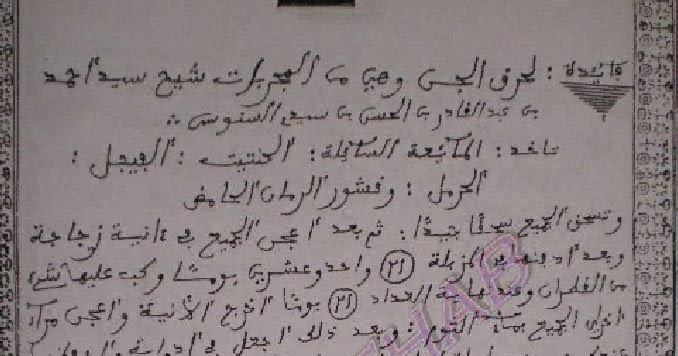 فائدة : لحرق الجن وهي من المجربات شيخ سيد احمد
بن عبد القادر بن الحسن بن سيدي السنوسي
تاخذ : المائعة السائلة : الحنتيت : الفيجل :
الحرمل : وقشور الرمان الحامض
وتسحق الجميع سحقا جيدًا : ثم بعد اعجن الجميع في ءانية زجاجة
وبعد ادفنها في المزبلة ٢١ واحد وعشرين يومًا وكب عليها شيء
من القطران وعند نهاية العداد ٢١ يومًا اخرج الأنية واعجن مرة
اخرى الجميع بماء الثوم : وبعد ذلك اجعل في
HAB